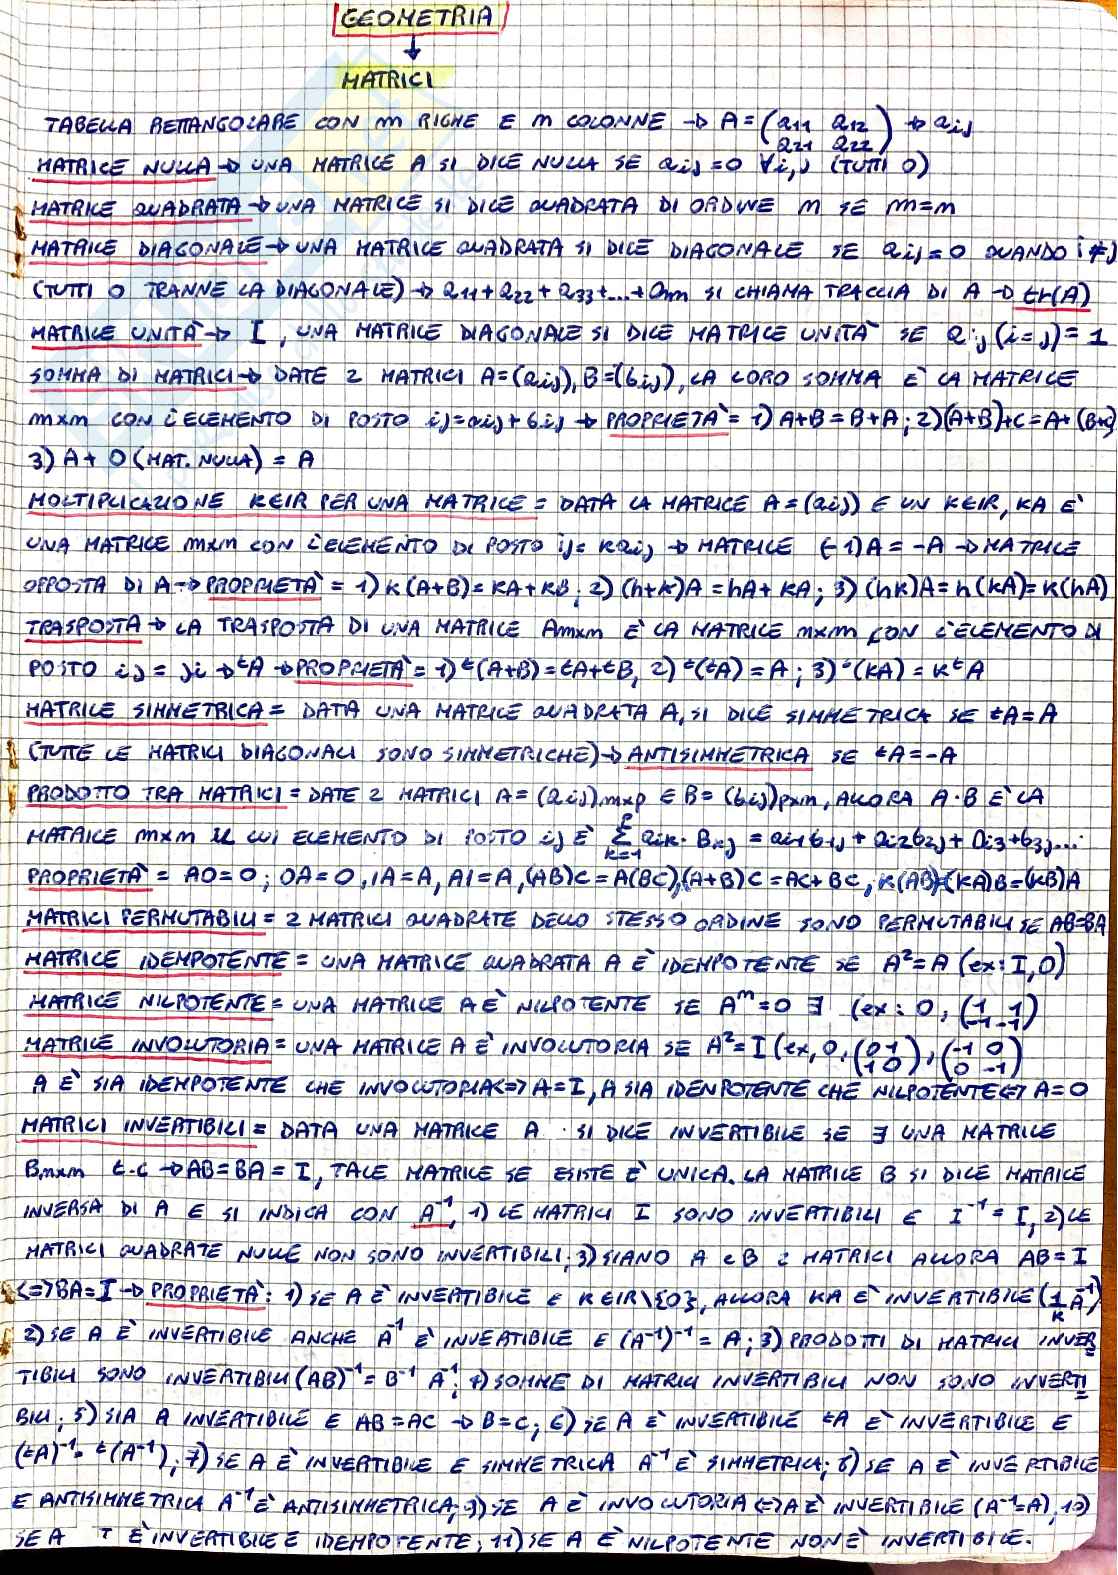 GEOMETRIA
↓
MATRICI
TABELLA RETTANGOLARE CON m RIGHE E n COLONNE → A = (a11 a12 a21 a22) → aij
MATRICE NULLA → UNA MATRICE A SI DICE NULLA SE aij = 0 ∀i,j (TUTTI 0)
MATRICE QUADRATA → UNA MATRICE SI DICE QUADRATA DI ORDINE n SE m=n
MATRICE DIAGONALE → UNA MATRICE QUADRATA SI DICE DIAGONALE SE aij = 0 QUANDO i≠j
(TUTTI 0 TRANNE LA DIAGONALE) → a11 + a22 + a33 + ... + ann SI CHIAMA TRACCIA DI A → tr(A)
MATRICE UNITÀ → I, UNA MATRICE DIAGONALE SI DICE MATRICE UNITÀ SE aij (i=j) = 1
SOMMA DI MATRICI → DATE 2 MATRICI A=(aij), B=(bij), LA LORO SOMMA È LA MATRICE
mxn CON L'ELEMENTO DI POSTO ij = aij + bij → PROPRIETÀ = 1) A+B = B+A; 2) (A+B)+C = A+(B+C)
3) A + O (MAT. NULLA) = A
MOLTIPLICAZIONE K∈IR PER UNA MATRICE = DATA LA MATRICE A = (aij) E UN K∈IR, KA È
UNA MATRICE mxn CON L'ELEMENTO DI POSTO ij = Kaij → MATRICE (-1)A = -A → MATRICE
OPPOSTA DI A → PROPRIETÀ = 1) K(A+B) = KA + KB; 2) (h+K)A = hA + KA; 3) (hK)A = h(KA) = K(hA)
TRASPOSTA → LA TRASPOSTA DI UNA MATRICE Amxn È LA MATRICE nxm CON L'ELEMENTO DI
POSTO ij = ji → tA → PROPRIETÀ = 1) t(A+B) = tA + tB, 2) t(tA) = A; 3) t(KA) = KtA
MATRICE SIMMETRICA = DATA UNA MATRICE QUADRATA A, SI DICE SIMMETRICA SE tA = A
(TUTTE LE MATRICI DIAGONALI SONO SIMMETRICHE) → ANTISIMMETRICA SE tA = -A
PRODOTTO TRA MATRICI = DATE 2 MATRICI A = (aij)mxp E B = (bij)pxn, ALLORA A·B È LA
MATRICE mxn IL CUI ELEMENTO DI POSTO ij È Σ(k=1, p) aik · Bkj = ai1b1j + ai2b2j + ai3+b3j...
PROPRIETÀ = AO = O; OA = O, IA = A, AI = A, (AB)C = A(BC), (A+B)C = AC + BC, K(AB) = (KA)B = (KB)A
MATRICI PERMUTABILI = 2 MATRICI QUADRATE DELLO STESSO ORDINE SONO PERMUTABILI SE AB=BA
MATRICE IDEMPOTENTE = UNA MATRICE QUADRATA A È IDEMPOTENTE SE A² = A (ex: I, O)
MATRICE NILPOTENTE = UNA MATRICE A È NILPOTENTE SE Aⁿ = 0 ∃ (ex: 0, (1 1 -1 -1)
MATRICE INVOLUTORIA = UNA MATRICE A È INVOLUTORIA SE A² = I (ex, 0, (0 1 1 0), (-1 0 0 -1)
A È SIA IDEMPOTENTE CHE INVOLUTORIA <=> A = I, A SIA IDENPOTENTE CHE NILPOTENTE <=> A = 0
MATRICI INVERTIBILI = DATA UNA MATRICE A SI DICE INVERTIBILE SE ∃ UNA MATRICE
Bnxn t.c → AB = BA = I, TALE MATRICE SE ESISTE È UNICA. LA MATRICE B SI DICE MATRICE
INVERSA DI A E SI INDICA CON A⁻¹, 1) LE MATRICI I SONO INVERTIBILI E I⁻¹ = I, 2) LE
MATRICI QUADRATE NULLE NON SONO INVERTIBILI; 3) SIANO A e B 2 MATRICI ALLORA AB = I
<=> BA = I → PROPRIETÀ: 1) SE A È INVERTIBILE E K∈IR\{0}, ALLORA KA È INVERTIBILE (1/K A⁻¹)
2) SE A È INVERTIBILE ANCHE A⁻¹ È INVERTIBILE E (A⁻¹)⁻¹ = A; 3) PRODOTTI DI MATRICI INVER
TIBILI SONO INVERTIBILI (AB)⁻¹ = B⁻¹ A⁻¹; 4) SOMME DI MATRICI INVERTIBILI NON SONO INVERTI
BILI; 5) SIA A INVERTIBILE E AB = AC → B = C; 6) SE A È INVERTIBILE tA È INVERTIBILE E
(tA)⁻¹ = t(A⁻¹); 7) SE A È INVERTIBILE E SIMMETRICA A⁻¹ È SIMMETRICA; 8) SE A È INVERTIBILE
E ANTISIMMETRICA A⁻¹ È ANTISIMMETRICA; 9) SE A È INVOLUTORIA <=> A È INVERTIBILE (A⁻¹=A), 10)
SE A È INVERTIBILE E IDEMPOTENTE; 11) SE A È NILPOTENTE NON È INVERTIBILE.